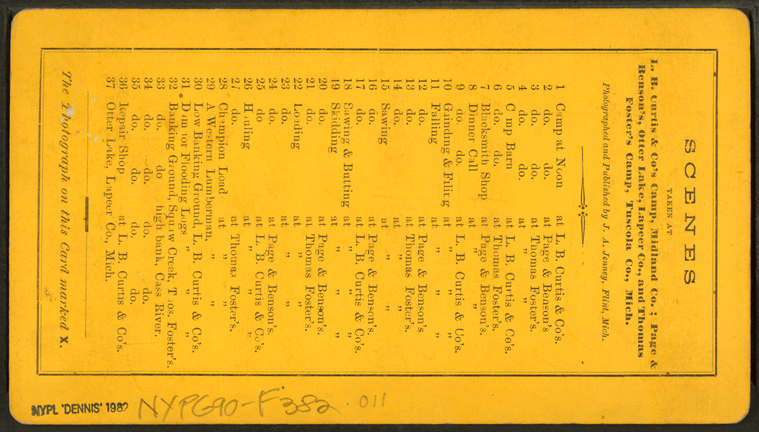 SCENES
TAKEN AT
L. B. Curtis & Co's Camp, Midland Co.; Page &
Benson's, Otter Lake, Lapeer Co., and Thomas
Foster's Camp, Tuscola Co., Mich.
Photographed and Published by J. A. Jenney, Flint, Mich.
1 Camp at Noon at L. B. Curtis & Co's.
2 do. do. at Page & Benson's
3 do. do. at Thomas Foster's
4 do. do. at " "
5 Camp Barn at L. B. Curtis & Co's.
6 do. do. at Thomas Foster's.
7 Blacksmith Shop at Page & Benson's.
8 Dinner Call at " "
9 do. do. at L. B. Curtis & Co's.
10 Grinding & Filing at " "
11 Falling at " "
12 do. at Page & Benson's.
13 do. at Thomas Foster's
14 do. at " "
15 Sawing at " "
16 do. at Page & Benson's.
17 do. at L. B. Curtis & Co's.
18 Sawing & Butting at " "
19 Skidding at " "
20 do. at Page & Benson's.
21 do. at Thomas Foster's.
22 Loading at " "
23 do. at " "
24 do. at Page & Benson's.
25 do at L. B. Curtis & Co's.
26 Hauling at " "
27 do. at Thomas Foster's.
28 Champion Load at " "
29 A Western Lumberman, " "
30 Low Banking Ground, L. B. Curtis & Co's.
31 Dam for Flooding Logs " "
32 Banking Ground, Squaw Creek, Thos. Foster's.
33 do. do high bank, Cass River.
34 do. do. do. do.
35 do. do. do.
36 Repair Shop at L. B. Curtis & Co's.
37 Otter Lake, Lapeer Co., Mich.
The Photograph on this Card marked X.
NYPL 'DENNIS' 1982 NYPG90-F382 .011